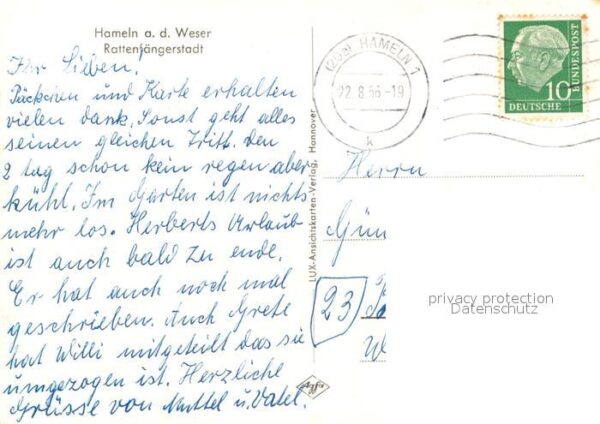 Hameln a. d. Weser
Rattenfängerstadt
Ihr Lieben!
Päckchen und Karte erhalten
vielen dank. Sonst geht alles
seinen gleichen Tritt. den
2 tag schon kein regen aber
kühl. Im Garten ist nichts
mehr los. Herberts Urlaub
ist auch bald zu ende.
Er hat auch noch mal
geschrieben. Auch Grete
hat Willi mitgeteilt das sie
umgezogen ist. Herzliche
Grüsse von Muttel u. Vatel.
LUX-Ansichtskarten-Verlag, Hannover
Agfa
(20a) HAMELN 1
22.8.56-19
k
10
DEUTSCHE
BUNDESPOST
Herrn
Gün
23
privacy protection
Datenschutz